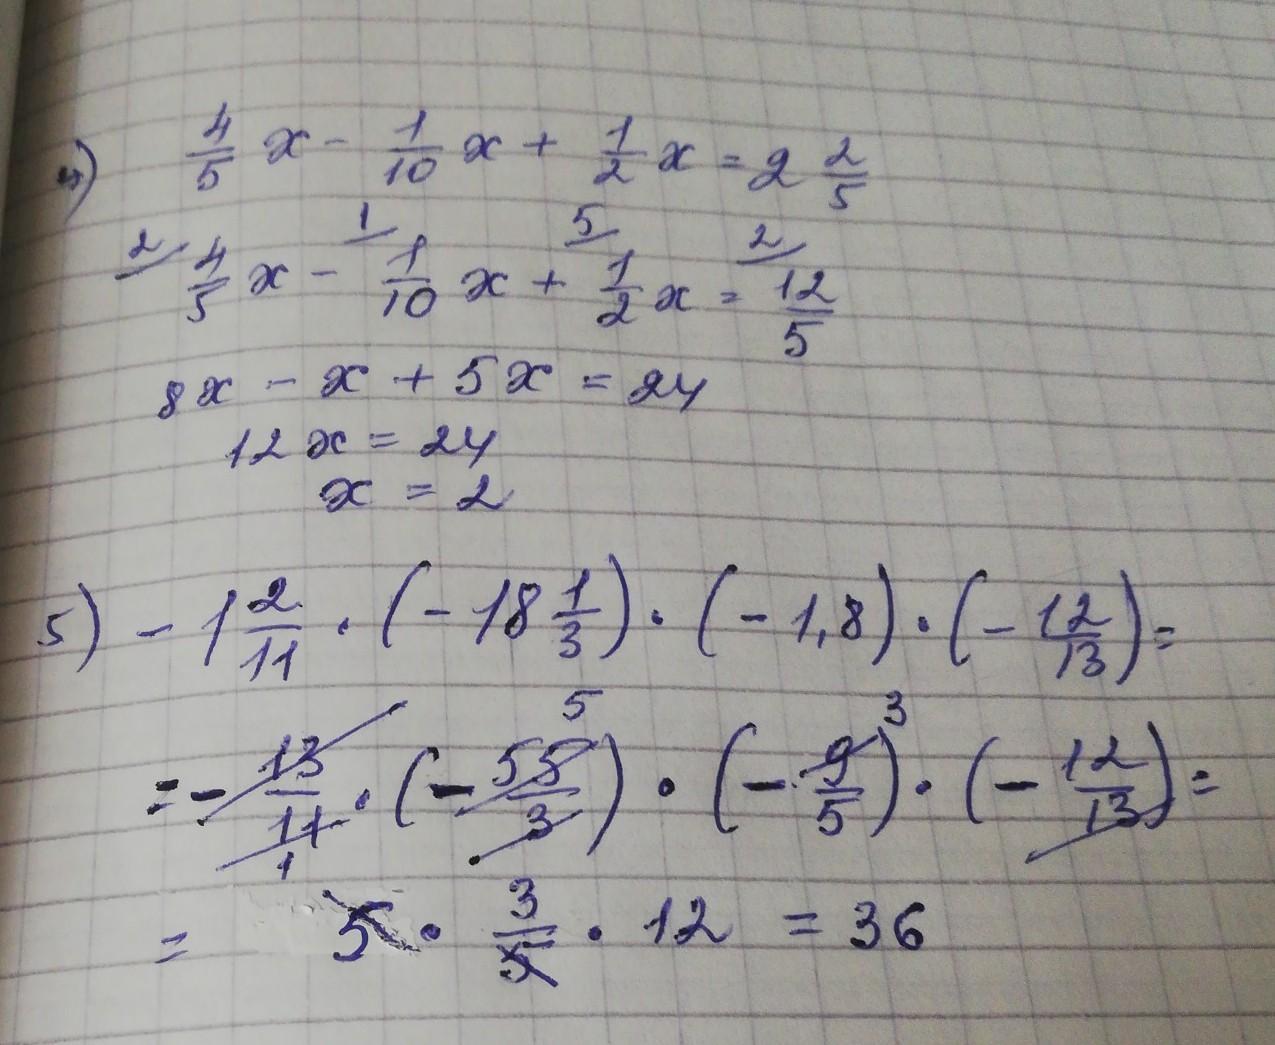 4) 4/5 x - 1/10 x + 1/2 x = 2 2/5
2/ 1/ 5/ 2/
4/5 x - 1/10 x + 1/2 x = 12/5
8x - x + 5x = 24
12x = 24
x = 2
5) - 1 2/11 · (- 18 1/3) · (- 1,8) · (- 12/13) =
5 3
= - 13/11 · (- 55/3) · (- 9/5) · (- 12/13) =
1
= 5 · 3/5 · 12 = 36